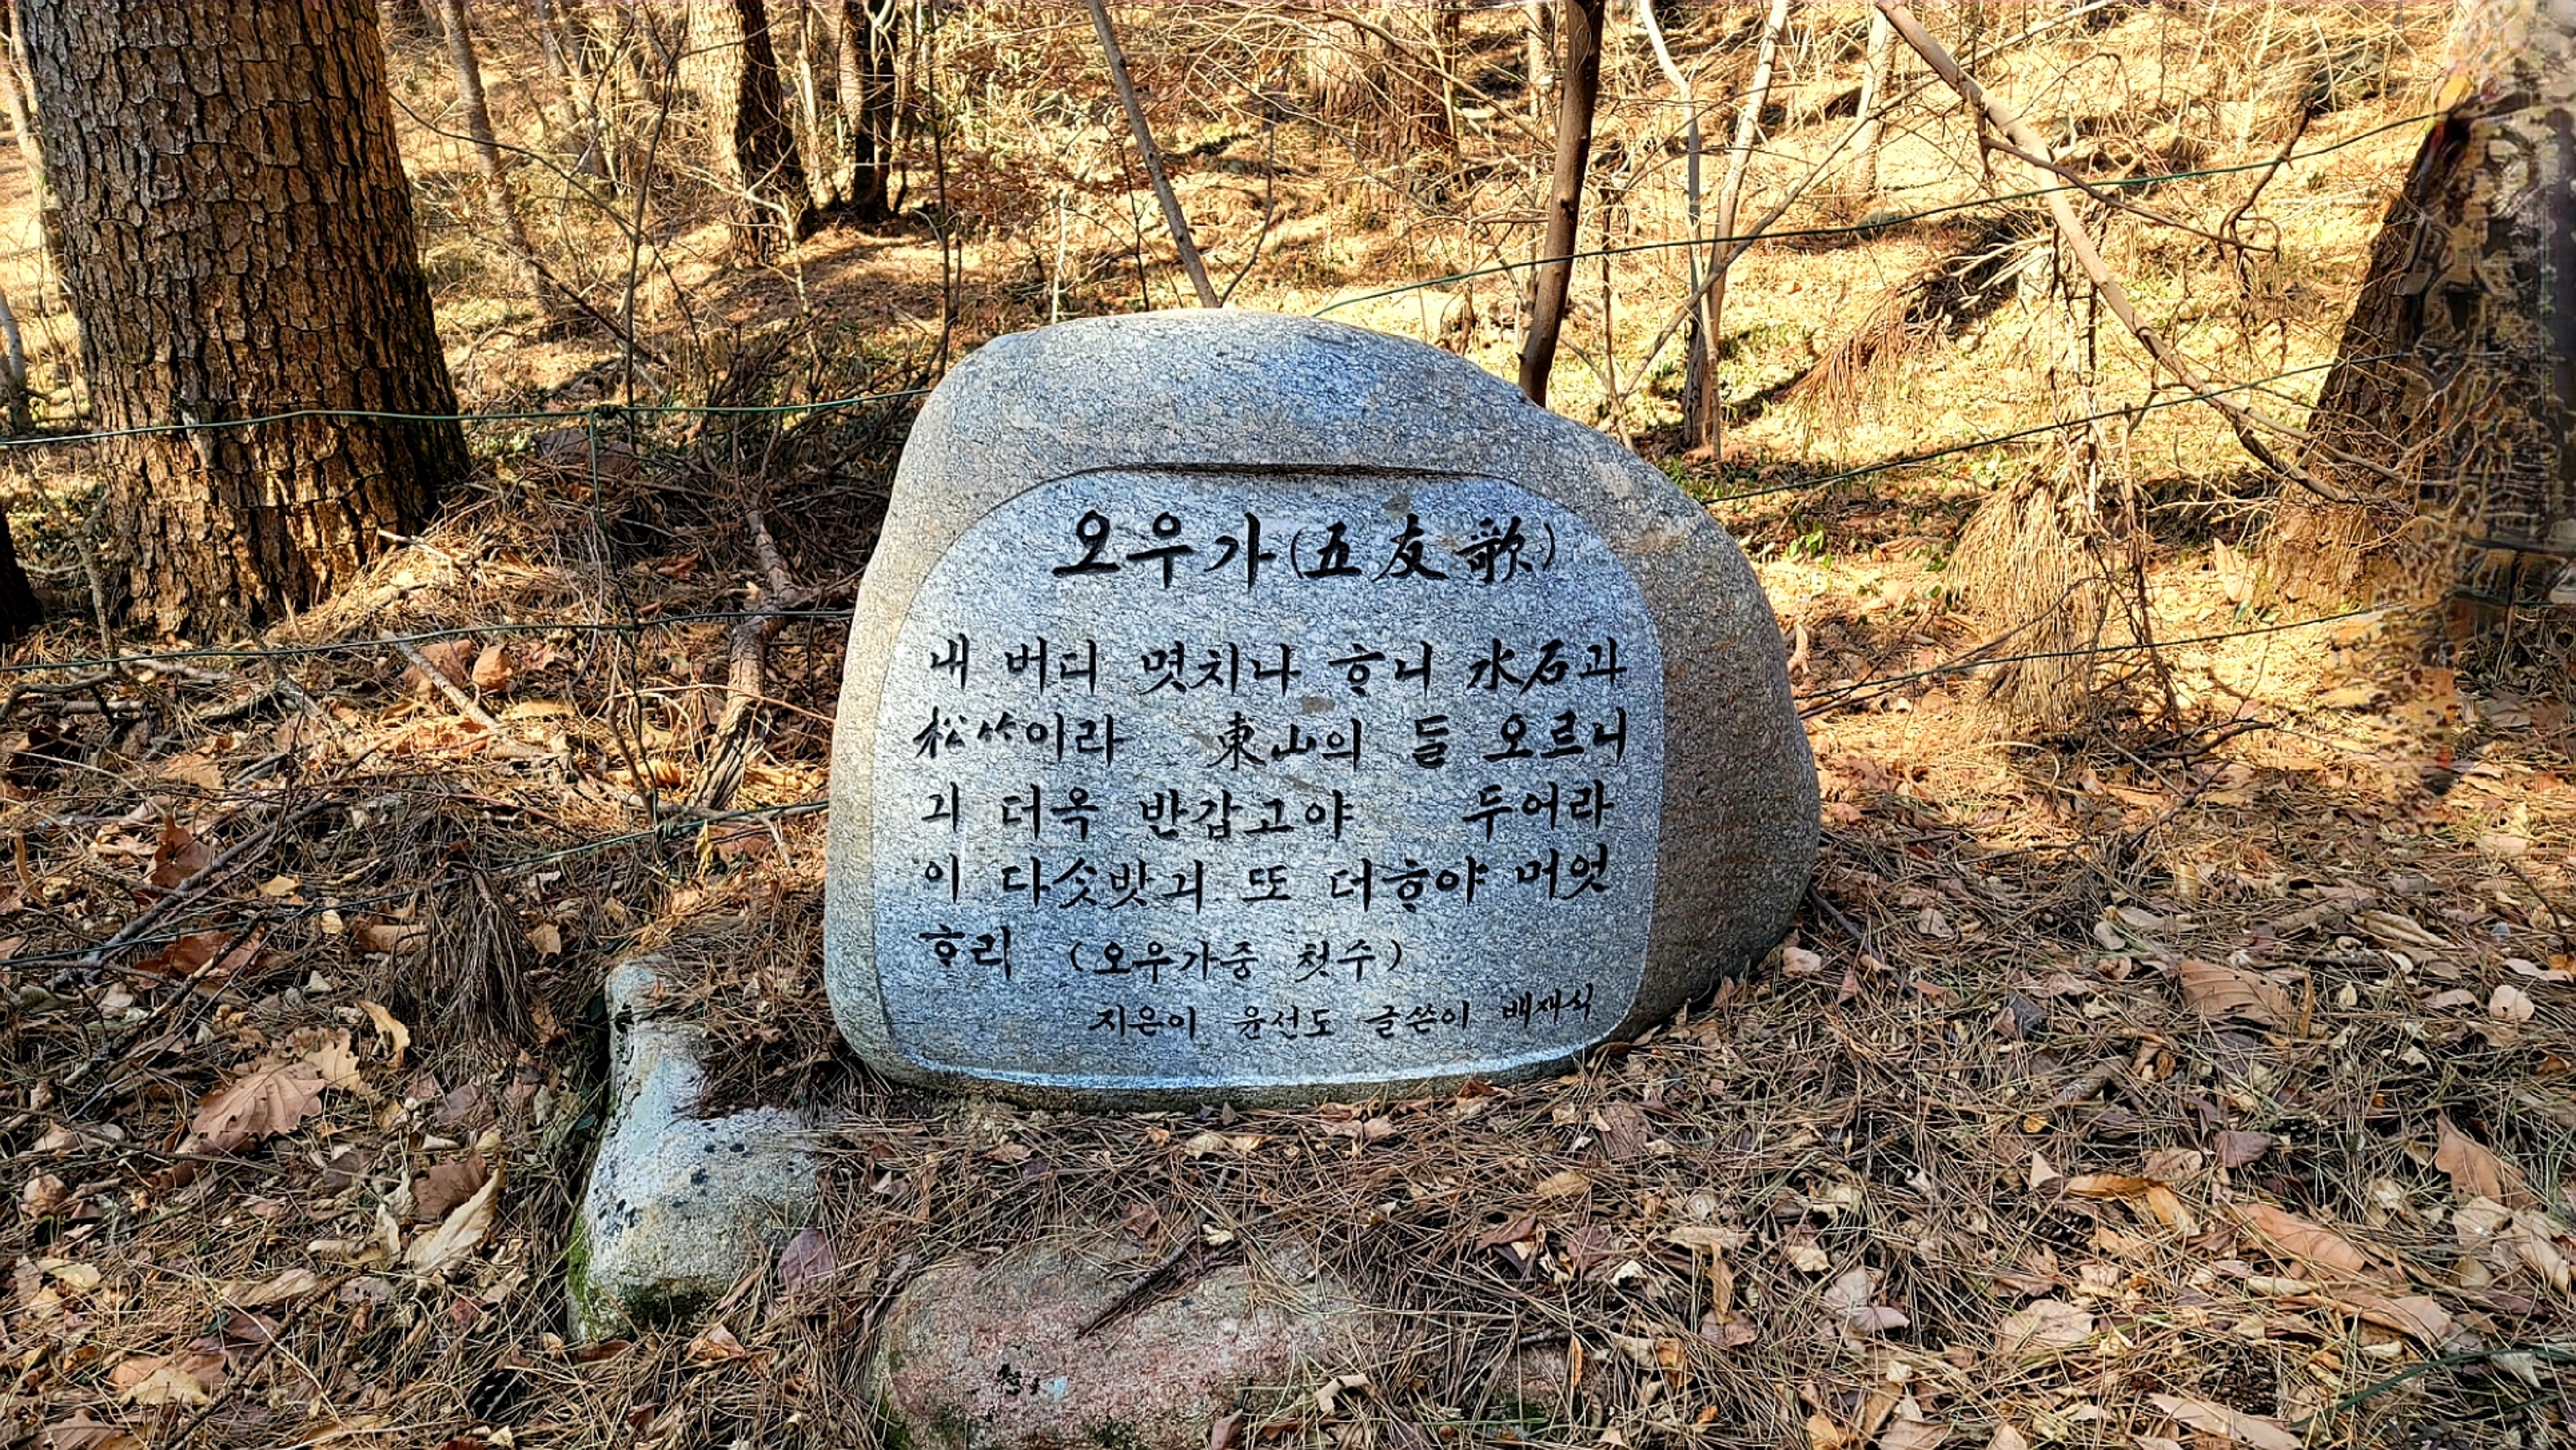 오우가(五友歌)
내 버디 몃치나 ᄒᆞ니 水石과
松竹이라 東山의 ᄃᆞᆯ 오르니
긔 더옥 반갑고야 두어라
이 다ᄉᆞᆺ밧긔 또 더ᄒᆞ야 머엇
ᄒᆞ리 (오우가중 첫수)
지은이 윤선도 글쓴이 배재식